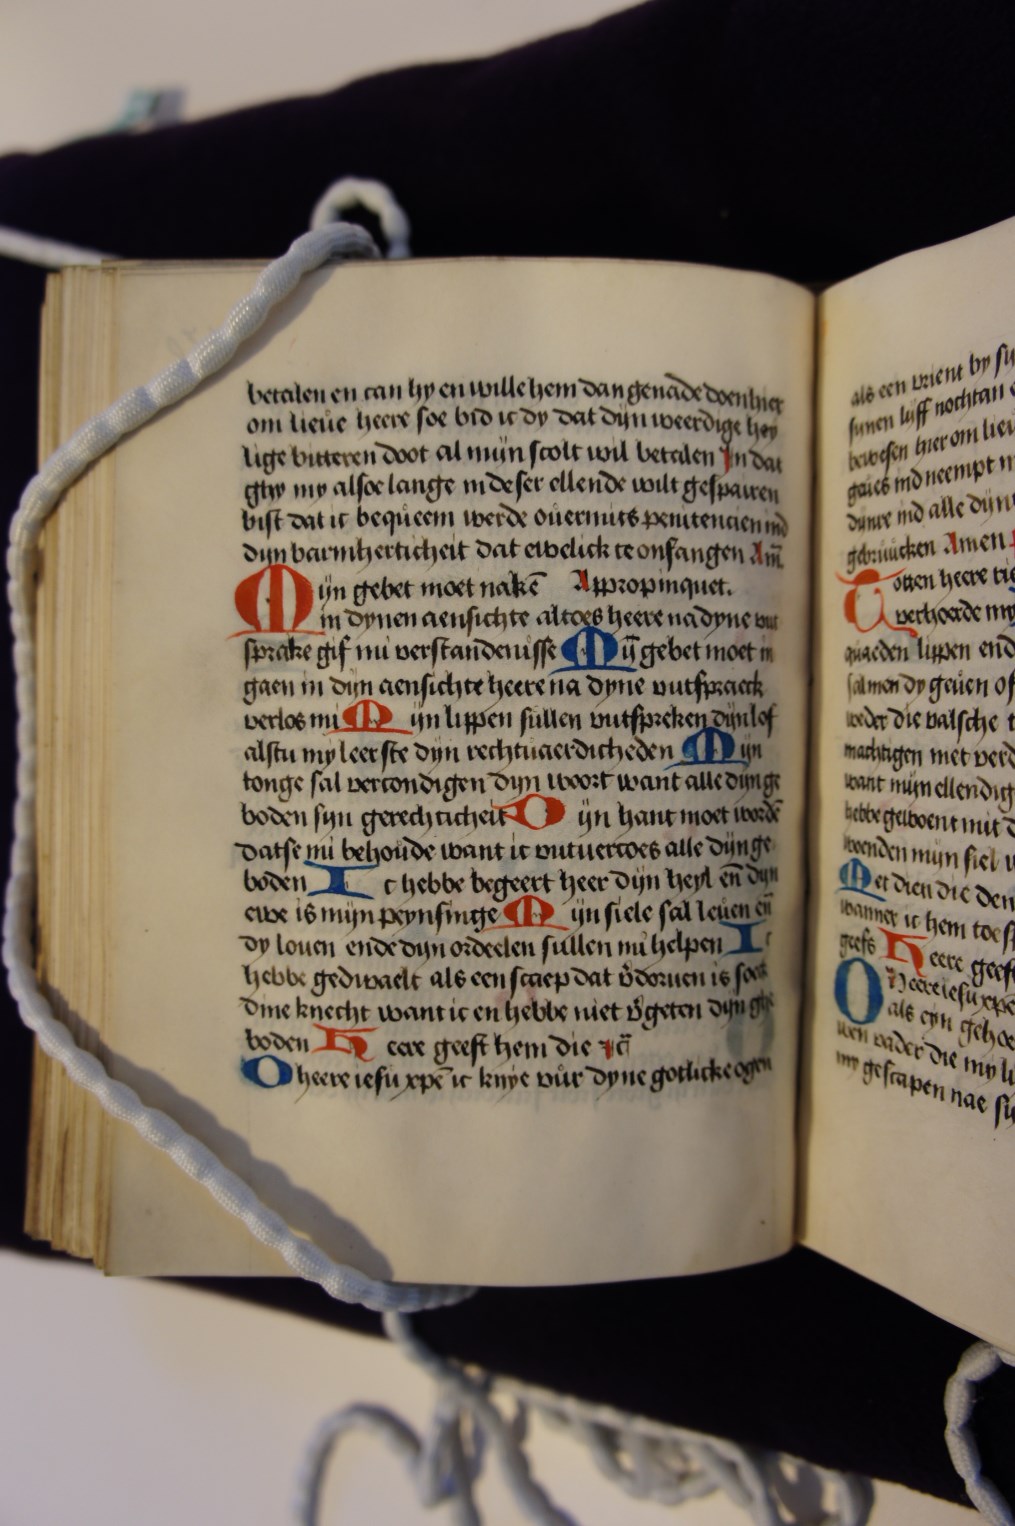 betalen en can hy en wille hem dan genade doen hier
om lieue heere soe bid ic dy dat dijn weerdige hey
lige bitteren doot al mijn scolt wil betalen In dat
ghy my alsoe lange in deser ellende wilt gespairen
bist dat ic bequeem werde ouermits penitencien ind
dijn barmherticheit dat ewelick te onfangen Am̄
Mijn gebet moet nakē Appropinquet.
in dynen aensichte altoes heere na dyne vut
sprake gif mi verstandenisse Mij̄ gebet moet in
gaen in dijn aensichte heere na dyne vutspraeck
verlos mi Mijn lippen sullen vutspreken dijn lof
alstu my leerste dijn rechtuaerdicheden Mijn
tonge sal vercondigen dijn woort want alle dijn ge
boden sijn gerechticheit Dijn hant moet wordē
datse mi behoude want ic vutuercoes alle dijn ge
boden Ic hebbe begeert heer dijn heyl en̄ dijn
ewe is mijn peynsinge Mijn siele sal leuen en̄
dy louen ende dijn ordeelen sullen mi helpen Ic
hebbe gedwaelt als een scaep dat v̄doruen is soect
dine knecht want ic en hebbe niet v̄geten dijn ghe
boden Heere geeft hem die ⁊c̄
O heere iesu xpē ic knye vur dyne gotlicke ogen
als een vrient by
sunen lijff nochtan
bewesen hier om lieu
gaues ind neempt
dunre ind alle dijn
gebruucken Amen
otten heere
verhoerde my
quaeden lippen end
sal men dy geuen of
weder die valsche
machtigen met
want mijn ellendig
hebbe geiwoent mit
woenden mijn siel
Met dien die den
wanneer ic hem toe
geefs Heere geeft
O Heere iesu xpē
als eyn
vader die my
my gescapen nae